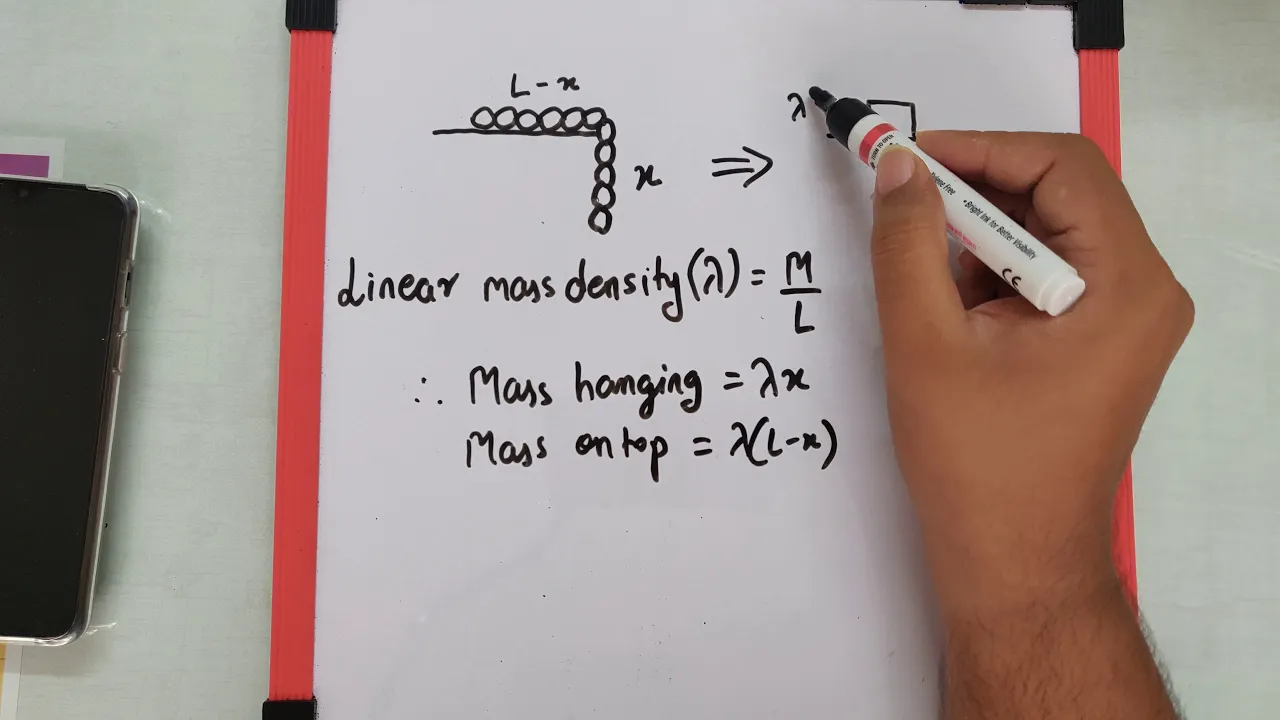 L-x
x
⇒
λ
Linear mass density (λ) = M/L
∴ Mass hanging = λx
Mass on top = λ(L-x)
• Bright ink for Better Visibility
CE